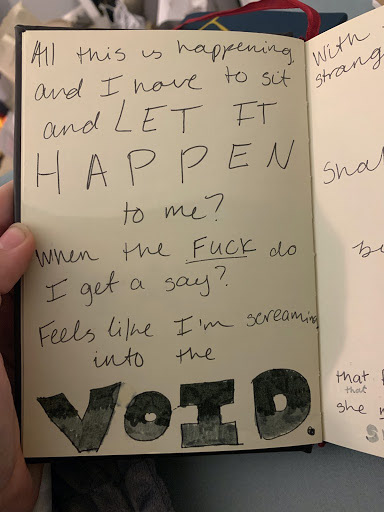 All this is happening,
and I have to sit
and LET IT
HAPPEN
to me?
When the FUCK do
I get a say?
Feels like I'm screaming
into the
VOID
With
strang
Shal
be
that
that
she